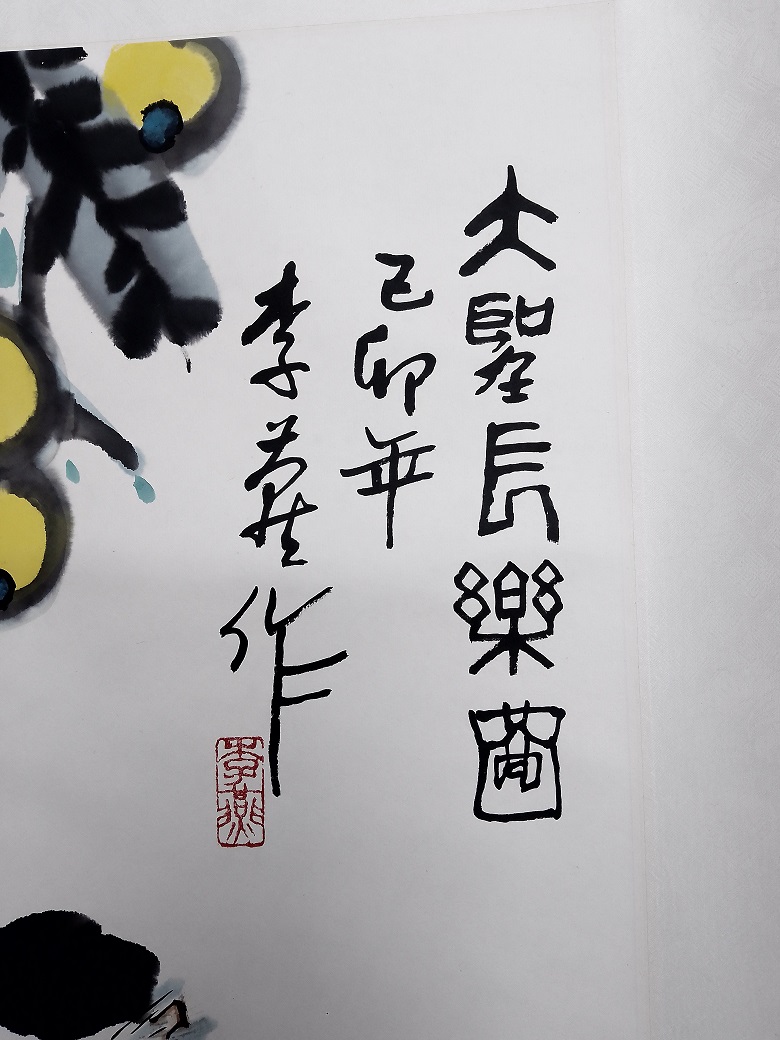 大聖長樂圖
己卯年
李燕作
李燕